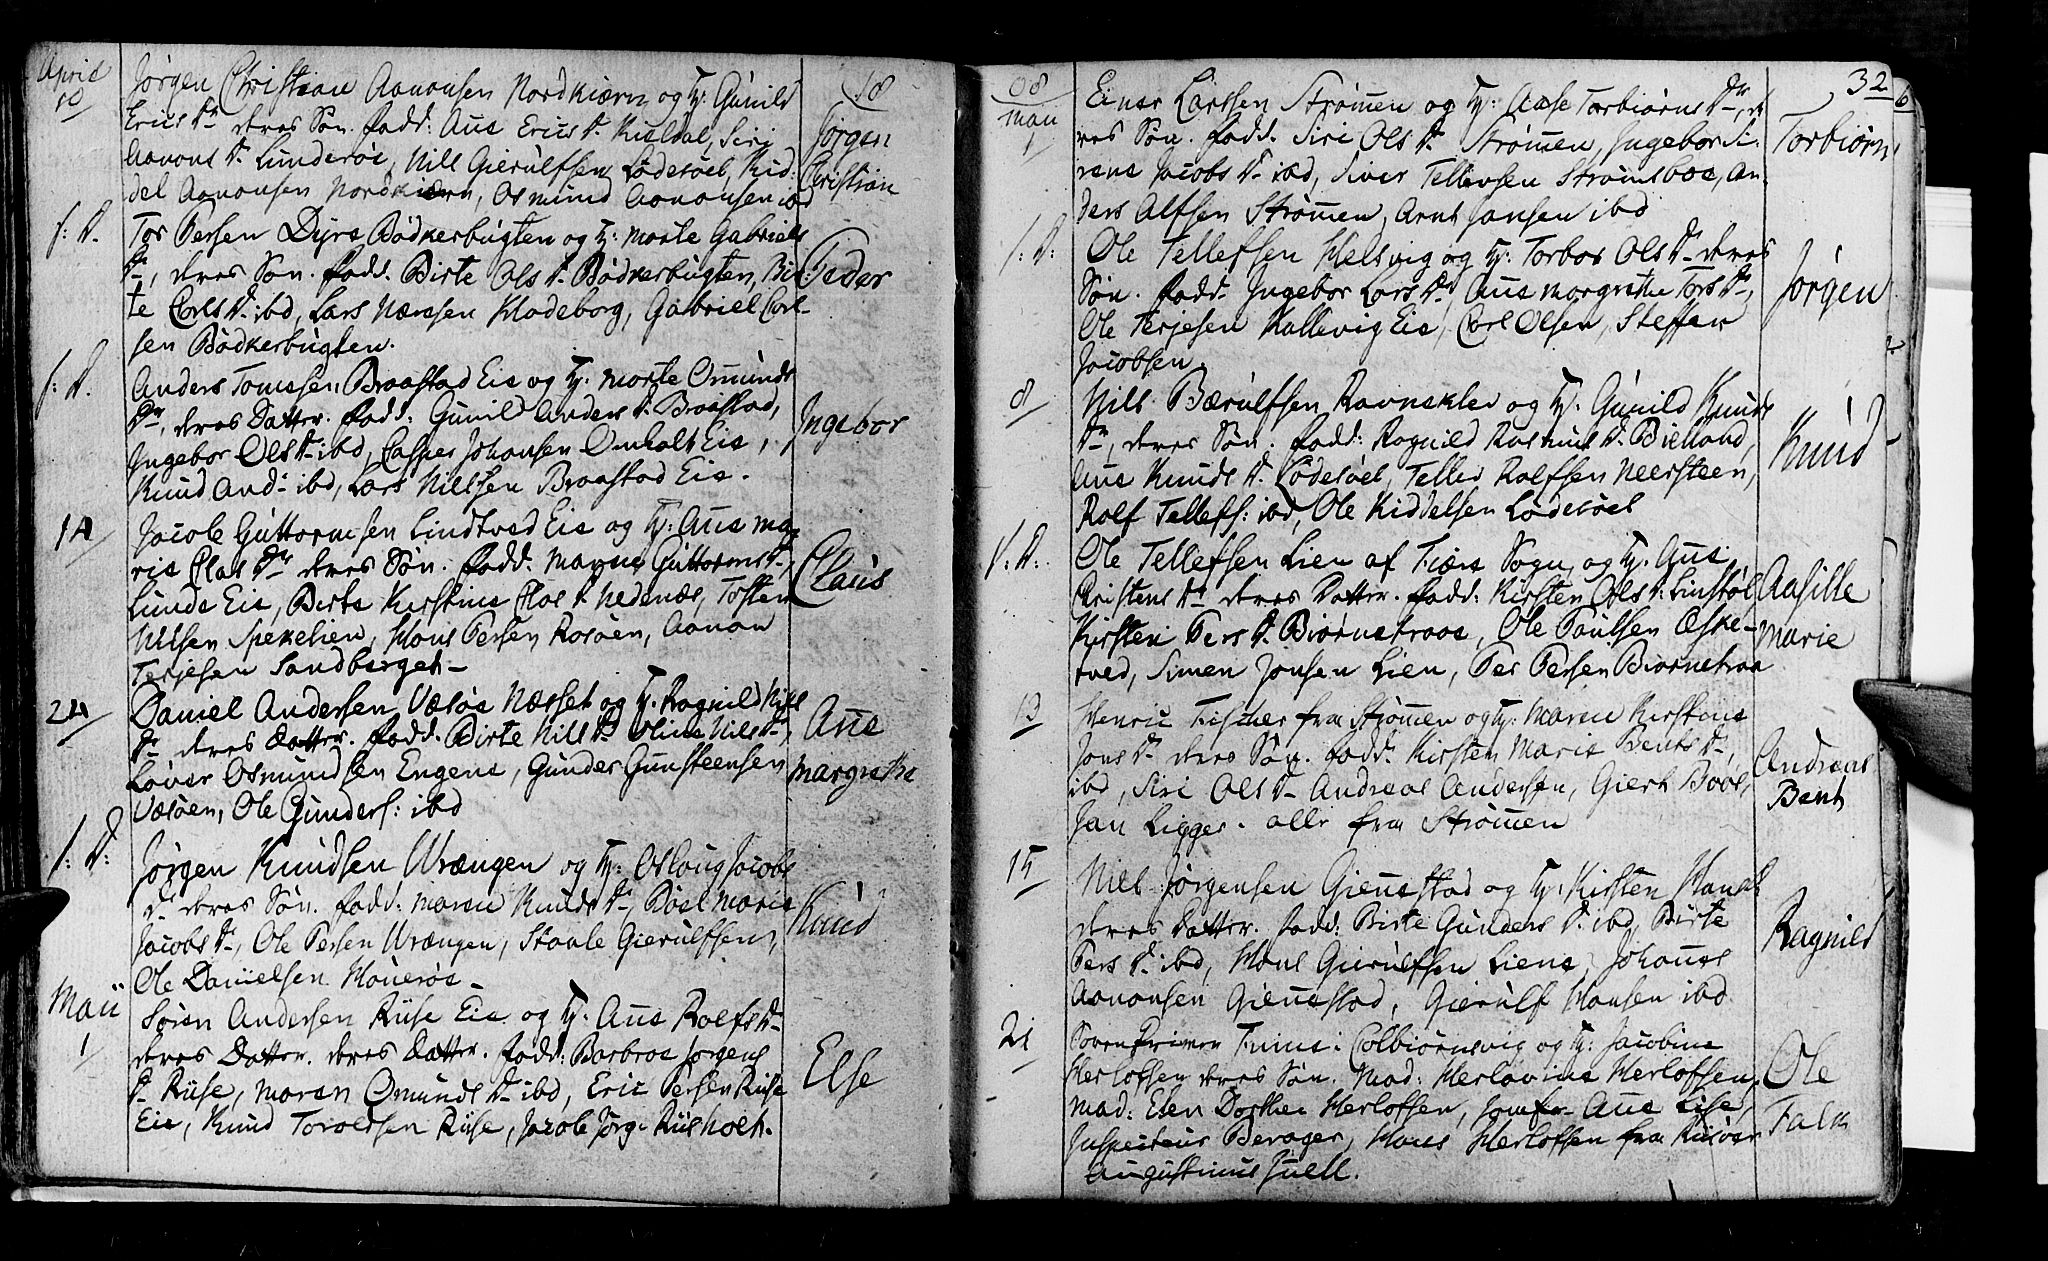 April
10
18
Jørgen Christian Aanonsen Nordkiærn og Hy: Gunild
Erics Dr deres Søn. fadd: Ane Erics D. Kuldal, Siri
Aanons D. Lunderøe, Nill Gierulfsen Lødesøel, Kid-
del Aanonsen Nordkiærn, Osmund Aanonsen ibd
Jørgen
Christian
s: D.
Tor Persen Dyre Bødkerbugten og Hy: Marte Gabriels
Dr, deres Søn. fadd. Birte Ols D. Bødkerbugten, Bir-
te Carls D. ibd, Lars Næssen Kladeborg, Gabriel Carl-
sen Bødkerbugten.
Peder
s: D.
Anders Tomessen Braastad Eie og Hy: Marte Osmunds
Dr, deres Datter. fadd: Gunil Anders D. Braastad,
Ingebor Ols D. ibd, Casper Johansen Omholt Eie,
Knud And- ibd, Lars Nielsen Braastad Eie.
Ingebor
14
Jacob Guttormsen Lindtved Eie og Hy: Ane Ma-
rie Clas Dr deres Søn. fadd. Maren Guttorms D.
Lunde Eie, Birte Kirstine Clas D. Nedenæs, Tosten
Nilsen Spekelien, Hans Persen Rosøen, Aanon
Terjesen Sandberget-
Claus
24
Daniel Andersen Væsøe Næsset og Hy. Ragnild Nils
Dr deres Datter. fadd. Birte Nils D. Oline Nils D.,
Løver Osmundsen Engene, Gunder Gunsteensen
Væsøen, Ole Gunders: ibd
Ane
Margrethe
s: D:
Jørgen Knudsen Wrængen og Hy: Oslaug Jacobs
Dr deres Søn. fadd: Maren Knuds D., Boel Marie
Jacobs D., Ole Persen Wrængen, Staale Gierulfsen,
Ole Danielsen Haverøe-
Knud
Maii
1
Søren Andersen Riise Eie og Hy: Ane Rolfs D.
deres Datter. deres Datter. fadd: Barbroe Jørgens
D. Riise, Maren Osmunds D. ibd, Eric Persen Riise
Eie, Knud Torvelsen Riise, Jacob Jørg- Riisholt.
Else
08
Maii
1
32
Einer Larssen Strømen og Hy: Aase Torbiørns Dr, de
res Søn. fadd. Siri Ols D. Strømen, Ingebor Si-
rene Jacobs D. ibd, Siver Tellevsen Strømsboe, An-
ders Alfsen Strømen, Arnt Jansen ibd
Torbiørn
s: D:
Ole Tellefsen Helsvig og Hy: Torbor Ols D. deres
Søn. fadd. Ingebor Lars D. Ane Margrethe Tors D.,
Ole Terjesen Kallevig Eie, Carl Olsen, Steffen
Jacobsen
Jørgen
8
Nils Bærulfsen Ravneklev og Hy: Gunild Knuds
Dr, deres Søn. fadd: Ragnild Rasmus D. Bielland,
Ane Knuds D. Lødesøel, Tellev Rolfsen Neersteen,
Rolf Tellefs: ibd, Ole Kiddelsen Lødesøel
Knud
s: D.
Ole Tellefsen Lien af Fiære Sogn, og Hy. Ane
Christens Dr deres Datter. fadd: Kirsten Ols D. Linstøl
Kirsten Pers D. Biørnetraae, Ole Poulsen Æske-
tved, Simen Jonsen Lien, Per Persen Biørnetraa
Aasille
Marie
13
Henric Fischer fra Strømen og Hy: Maren Kirstine
Jons Dr deres Søn. fadd. Kirsten Marie Bents D.
ibd, Siri Ols D. Andreas Andersen, Giert Boos,
Jan Ligger. alle fra Strømen
Andreas
Bent
15
Nils Jørgensen Gienestad og Hy: Kirsten Hans D.
deres Datter. fadd: Birte Gunders D. ibd, Birte
Pers D. ibd, Hans Gierulfsen Liene, Johannes
Aanonsen Gienestad, Gierulf Hansen ibd
Ragnild
21
Soren Colbiørnsvig og Hy: Jacobine
Herlofsen deres Søn. Mad: Herlovine Herlofsen,
Mad: Elen Dorthea Herlofsen, Jomfr. Ane Lise,
Inspecteur Berager, Hans Herlofsen fra Riisøer
Augustinus Juell.
Ole
Falk